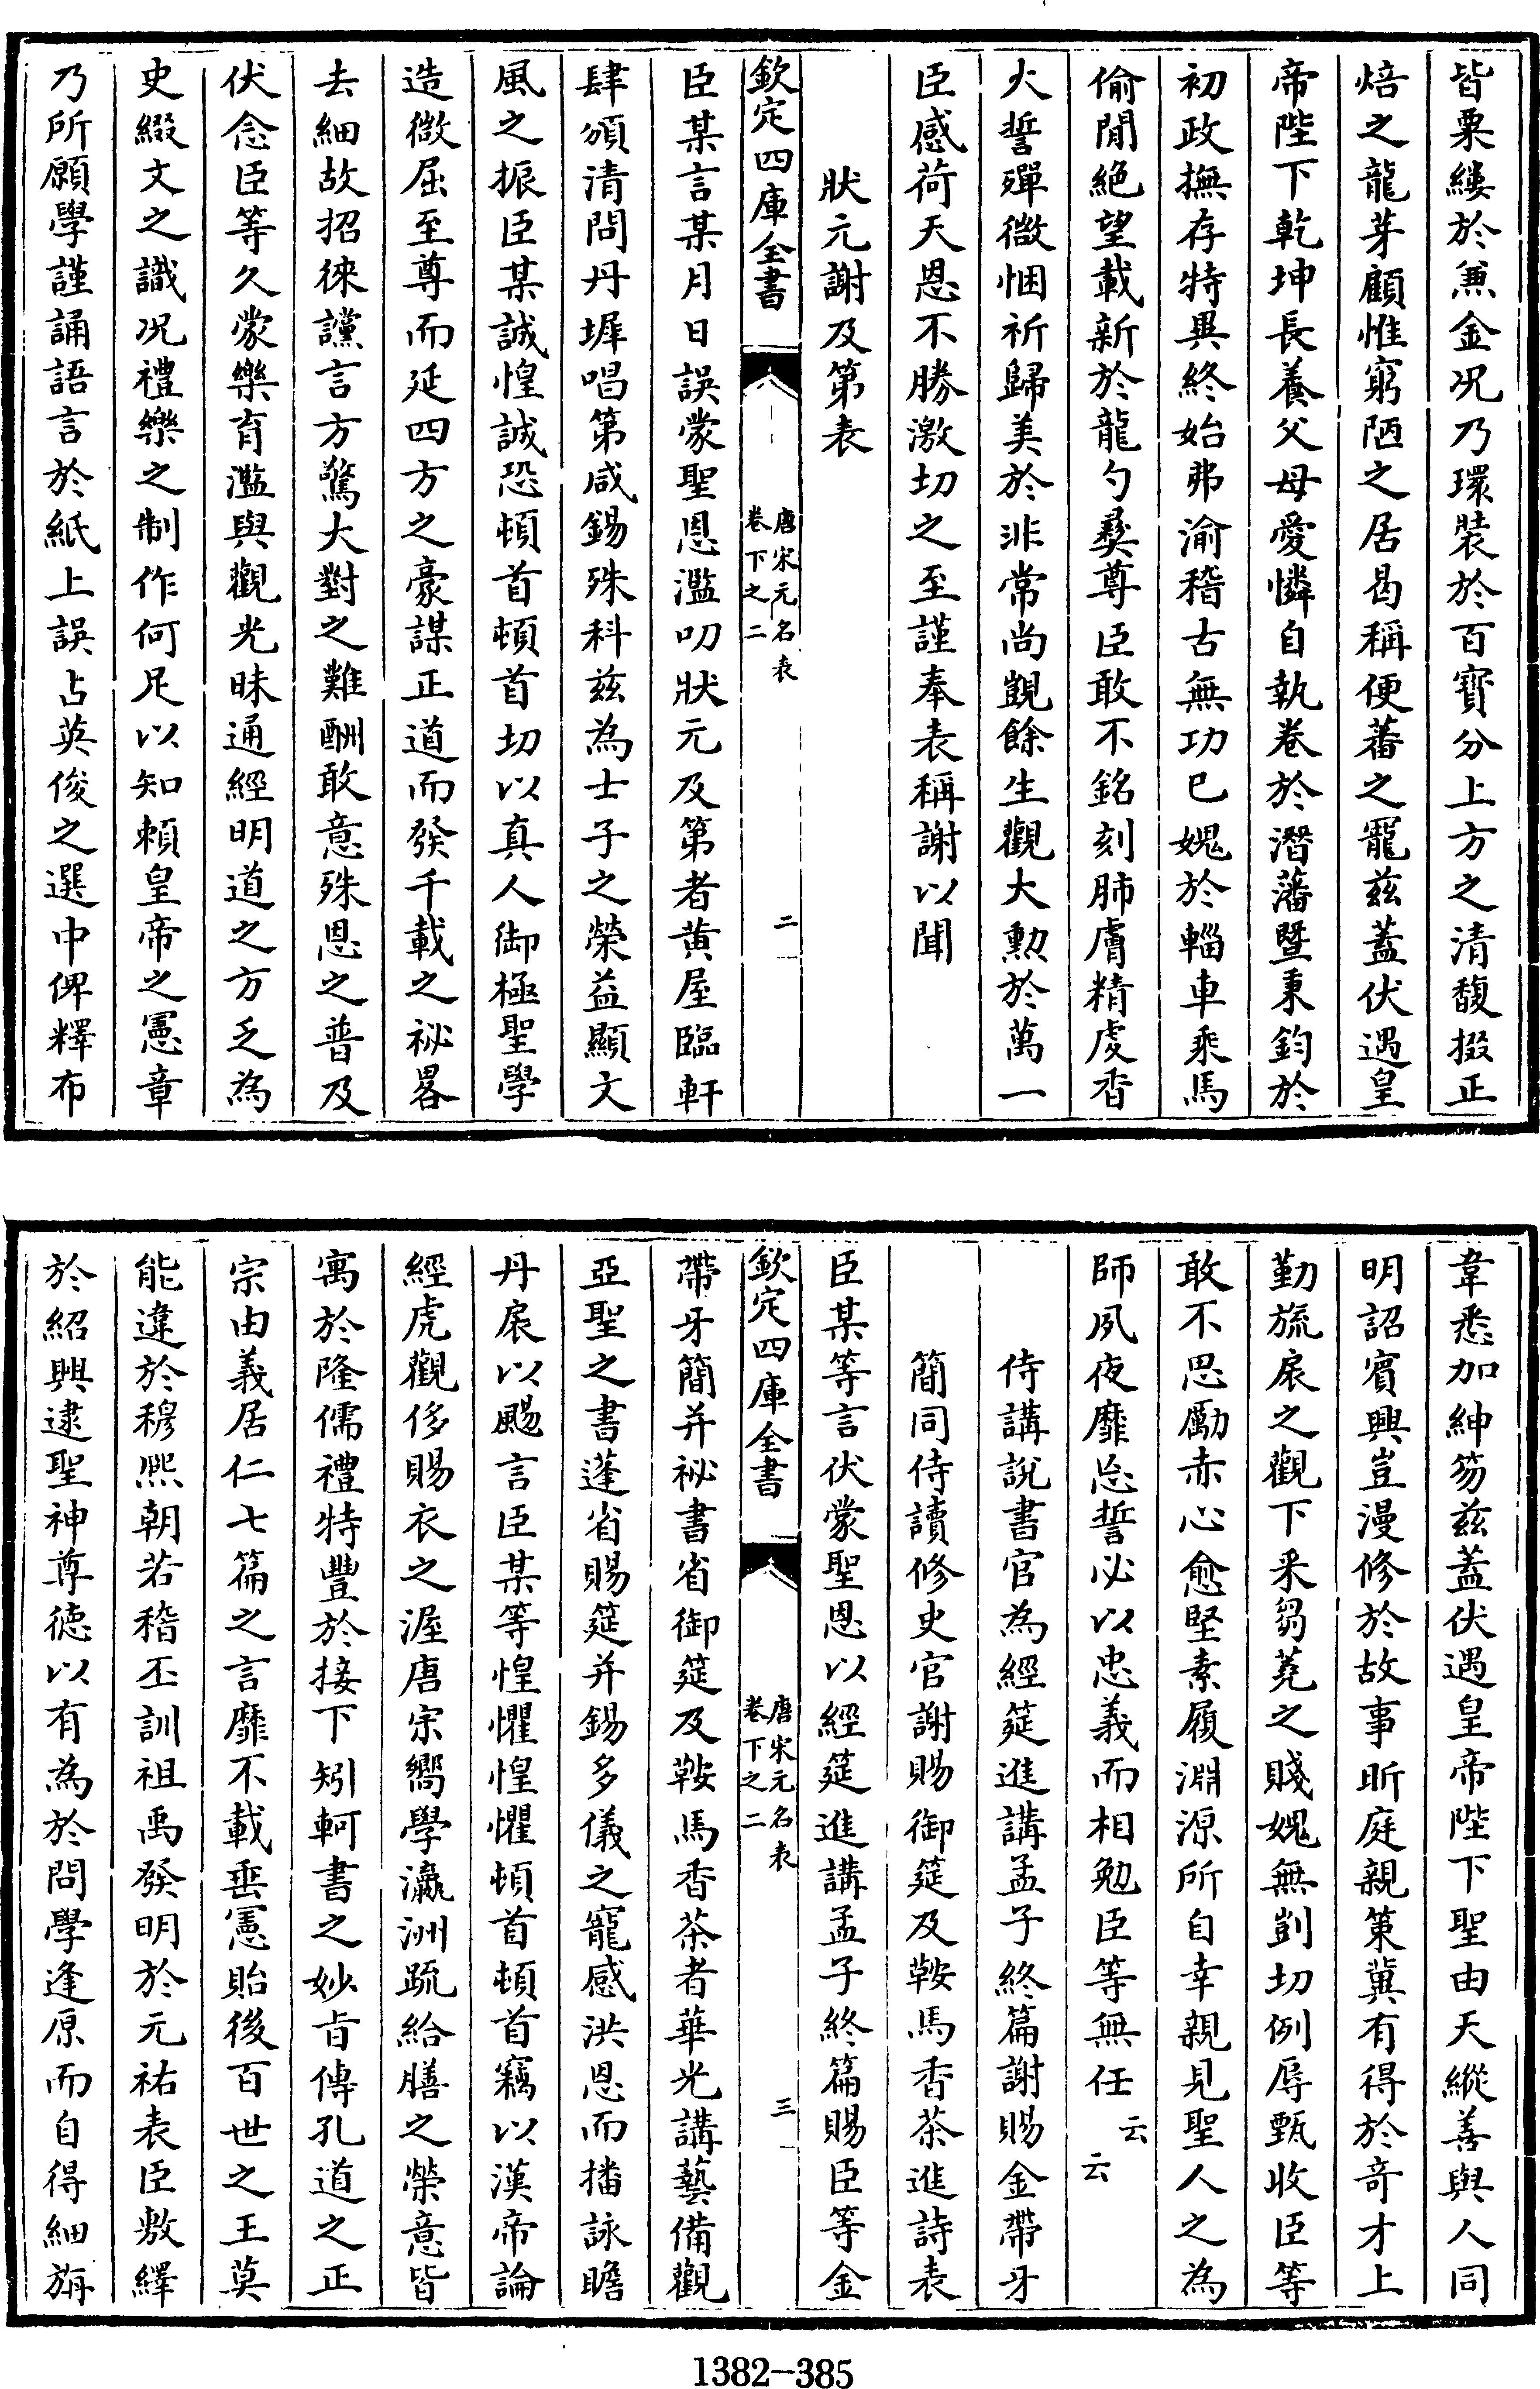 皆粟縷於兼金况乃環裝於百寳分上方之清馥掇正
焙之龍芽顧惟窮陋之居曷稱便蕃之寵兹蓋伏遇皇
帝陛下乾坤長養父母愛憐自執卷於潛藩暨秉鈞於
初政撫存特異終始弗渝稽古無功已媿於輜車乘馬
偷閒絶望載新於龍勺彛尊臣敢不銘刻肺膚精虔香
火誓殫微悃祈歸美於非常尚覬餘生觀大勲於萬一
臣感荷天恩不勝激切之至謹奉表稱謝以聞
狀元謝及第表
欽定四庫全書
唐宋元名表
卷下之二
二
臣某言某月日誤蒙聖恩濫叨狀元及第者黄屋臨軒
肆頒清問丹墀唱第咸錫殊科兹為士子之榮益顯文
風之振臣某誠惶誠恐頓首頓首切以真人御極聖學
造微屈至尊而延四方之豪謀正道而發千載之祕畧
去細故招徠讜言方驚大對之難酬敢意殊恩之普及
伏念臣等久蒙樂育濫與觀光昧通經明道之方乏為
史綴文之識况禮樂之制作何足以知頼皇帝之憲章
乃所願學謹誦語言於紙上誤占英俊之選中俾釋布
韋悉加紳笏兹蓋伏遇皇帝陛下聖由天縱善與人同
明詔賓興豈漫修於故事昕庭親策冀有得於奇才上
勤旒扆之觀下采芻蕘之賤媿無剴切例辱甄收臣等
敢不思勵赤心愈堅素履淵源所自幸親見聖人之為
師夙夜靡忘誓必以忠義而相勉臣等無任云云
侍講說書官為經筵進講孟子終篇謝賜金帶牙
簡同侍讀修史官謝賜御筵及鞍馬香茶進詩表
臣某等言伏蒙聖恩以經筵進講孟子終篇賜臣等金
欽定四庫全書
唐宋元名表
卷下之二
三
帶牙簡并祕書省御筵及鞍馬香茶者華光講藝備觀
亞聖之書蓬省賜筵并錫多儀之寵感洪恩而播詠瞻
丹扆以颺言臣某等惶懼惶懼頓首頓首竊以漢帝論
經虎觀侈賜衣之渥唐宗嚮學瀛洲疏給膳之榮意皆
寓於隆儒禮特豐於接下矧軻書之妙旨傳孔道之正
宗由義居仁七篇之言靡不載垂憲貽後百世之王莫
能違於穆熙朝若稽丕訓祖禹發明於元祐表臣敷繹
於紹興逮聖神尊德以有為於問學逢原而自得細旃
1382-385